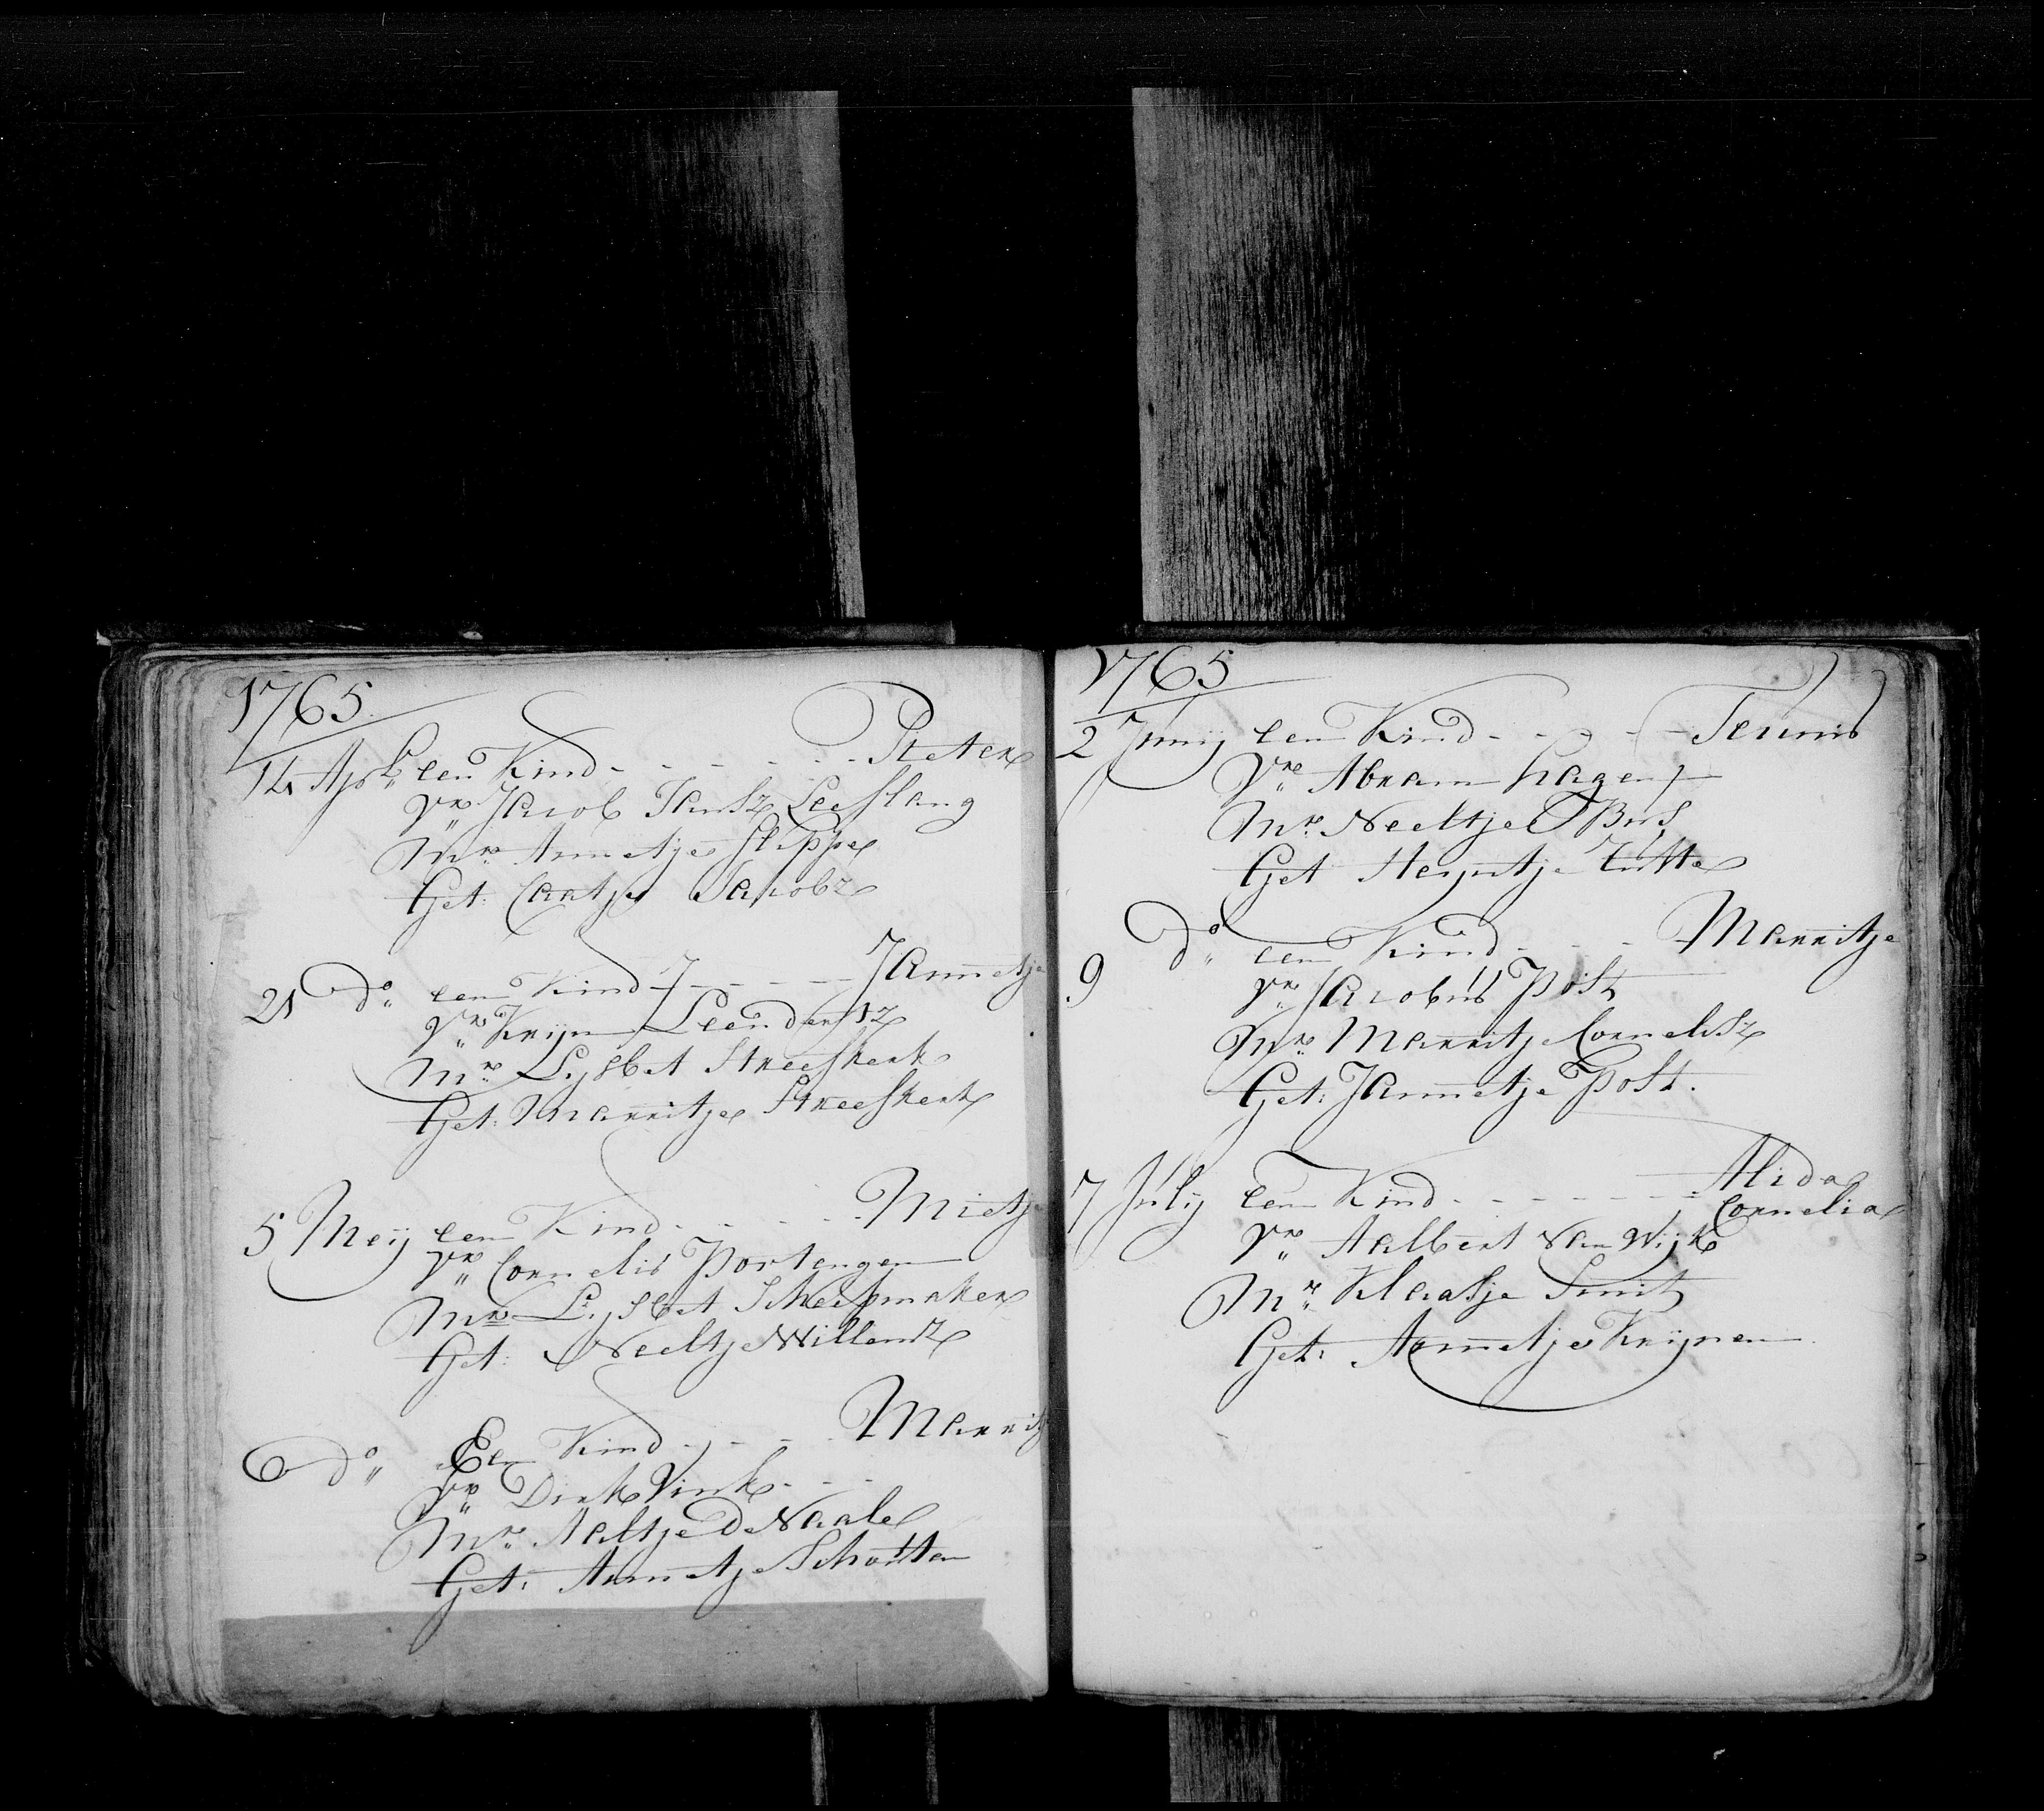 1765
14 Apl een Kind - - - - - - Pieter
Vr Jacob Jansz Leeflang
Mr Annetje Slippe
Get: Caatje Jacobz
21 do een Kind - - - - - Jannetje
Vr Krijn Leendertsz
Mr Lijsbet Streefkerk
Get: Marritje Streefkerk
5 Meij een Kind - - - - Mietje
Vr Cornelis Portengen
Mr Lijsbet Scheepmaker
Get: Neeltje Willemsz
6 do Een Kind - - - - Marritj
Vr Dirk Vink - - -
Mr Aaltje D Naale
Get: Annetje Schotten
1765
2 Junij een Kind - - - - - Teunis
Vr Abram Hagen
Mr Neeltje Bus
Get Heijntje Tutte
9 do een Kind - - - Marritje
Vr Jacobus Post
Mr Marritje Cornelisz
Get: Jannetje Post.
7 Julij een Kind - - - - - - Alida
Cornelia
Vr Aalbert van Wijk
Mr Klaasje Smit
Get: Annetje Krijnen